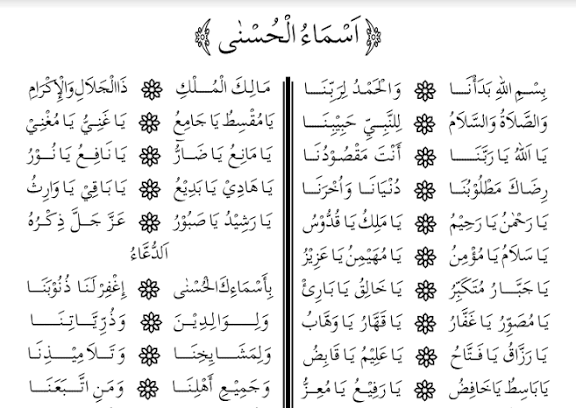 اَسْمَاءُ الْحُسْنٰى
بِسْمِ اللهِ بَدَأْنَا وَالْحَمْدُ لِرَبِّنَا
وَالصَّلَاةُ وَالسَّلَامُ لِلنَّبِيِّ حَبِيْبِنَا
يَا اَللهُ يَا رَبَّنَا أَنْتَ مَقْصُوْدُنَا
رِضَاكَ مَطْلُوْبُنَا دُنْيَانَا وَأُخْرٰنَا
يَا رَحْمٰنُ يَا رَحِيْمُ يَا مَلِكُ يَا قُدُّوْسُ
يَا سَلَامُ يَا مُؤْمِنُ يَا مُهَيْمِنُ يَا عَزِيْزُ
يَا جَبَّارُ مُتَكَبِّرُ يَا خَالِقُ يَا بَارِئُ
يَا مُصَوِّرُ يَا غَفَّارُ يَا قَهَّارُ يَا وَهَّابُ
يَا رَزَّاقُ يَا فَتَّاحُ يَا عَلِيْمُ يَا قَابِضُ
يَا بَاسِطُ يَا خَافِضُ يَا رَفِيْعُ يَا مُعِزُّ
مَالِكَ الْمُلْكِ ذَاالْجَلَالِ وَالْاِكْرَامِ
يَا مُقْسِطُ يَا جَامِعُ يَا غَنِيُّ يَا مُغْنِيْ
يَا مَانِعُ يَا ضَارُّ يَا نَافِعُ يَا نُوْرُ
يَا هَادِيْ يَا بَدِيْعُ يَا بَاقِيْ يَا وَارِثُ
يَا رَشِيْدُ يَا صَبُوْرُ عَزَّ جَلَّ ذِكْرُهُ
اَلدُّعَاءُ
بِأَسْمَاءِكَ الْحُسْنٰى اِغْفِرْ لَنَا ذُنُوْبَنَا
وَلِوَالِدِيْنَ وَذُرِّيَّاتِنَا
وَلِمَشَايِخِنَا وَتَلَامِيْذِنَا
وَجَمِيْعِ أَهْلِنَا وَمَنِ اتَّبَعَنَا